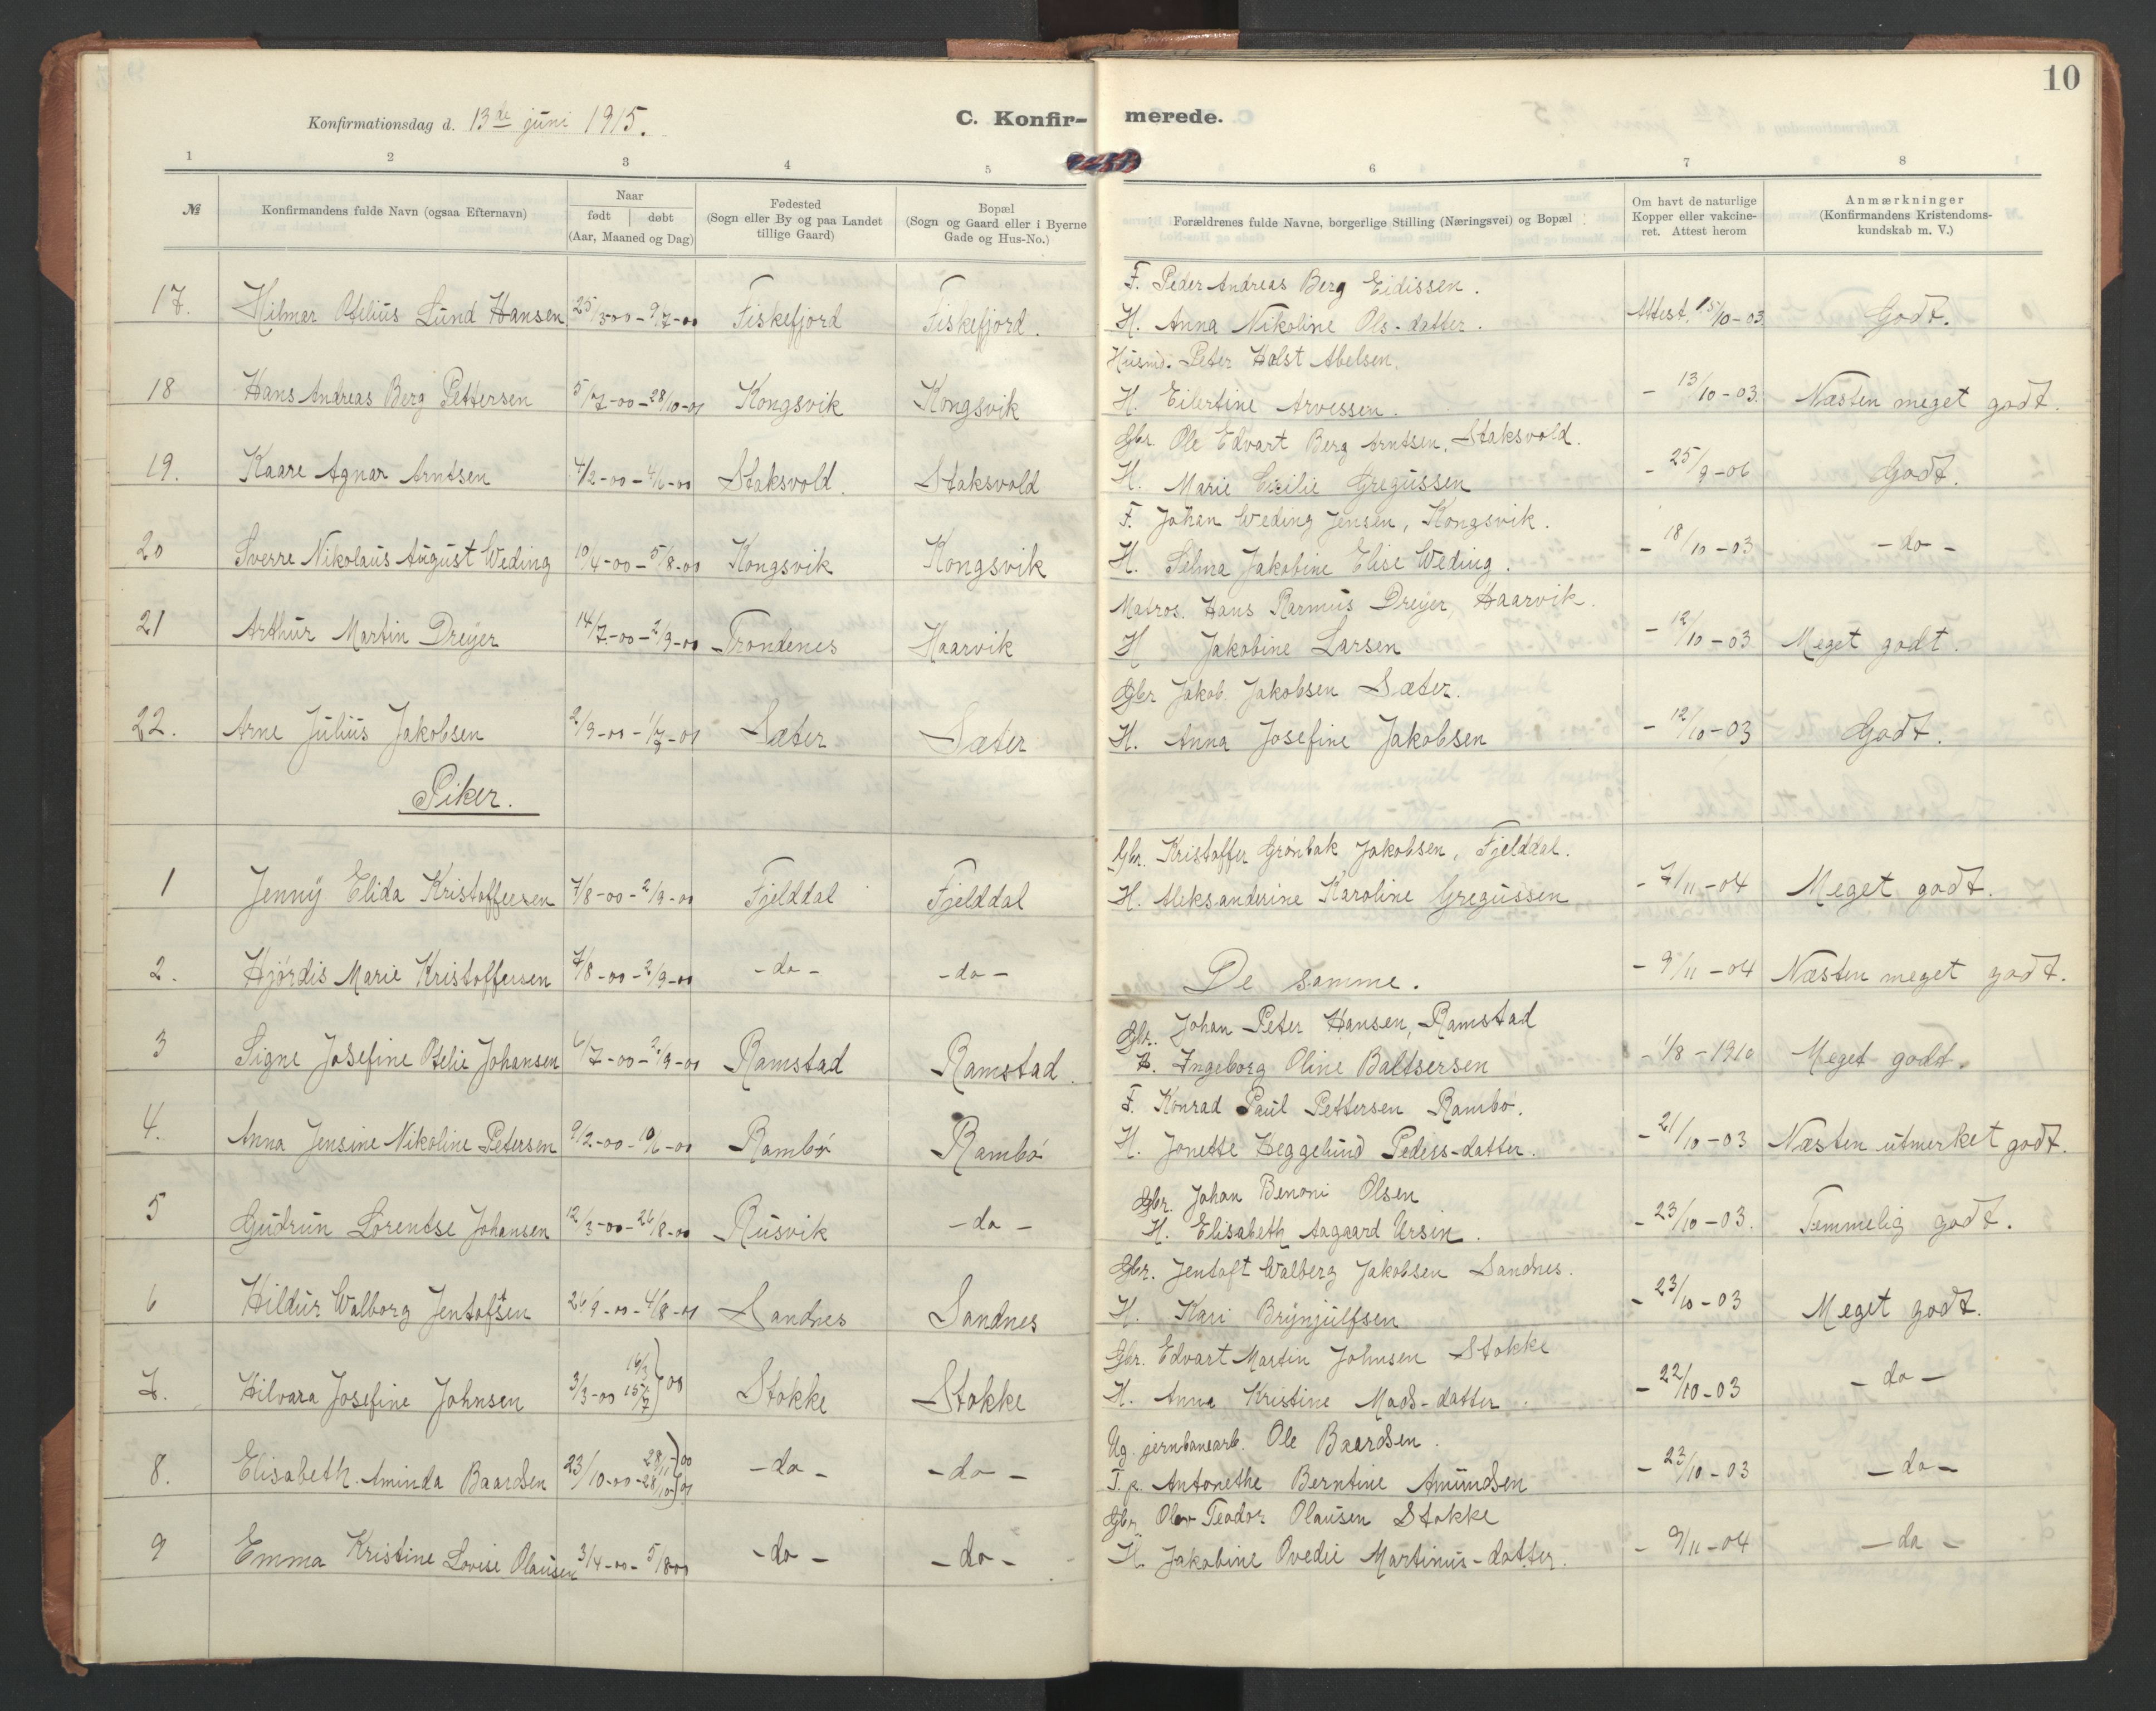 10
Konfirmationsdag d. 13de juni 1915.
C. Konfirmerede.
1 2 3 4 5 6 7 8
№ Konfirmandens fulde Navn (ogsaa Efternavn) Naar født døbt (Aar, Maaned og Dag) Fødested (Sogn eller By og paa Landet tillige Gaard) Bopæl (Sogn og Gaard eller i Byerne Gade og Hus-No.) Forældrenes fulde Navne, borgerlige Stilling (Næringsvei) og Bopæl Om havt de naturlige Kopper eller vakcineret. Attest herom Anmærkninger (Konfirmandens Kristendomskundskab m. V.)
F. Peder Andreas Berg Eidissen.
17. Hilmar Otelius Lund Hansen 25/3-00 - 9/7-00 Fiskefjord Fiskefjord. H. Anna Nikoline Ols-datter. Attest. 15/10-03 Godt.
Husmd. Peter Holst Abelsen.
18 Hans Andreas Berg Pettersen 5/7-00 - 28/10-01 Kongsvik Kongsvik H. Eilertine Arvessen. - 13/10-03. Næsten meget godt.
Gbr. Ole Edvart Berg Arntsen, Staksvold.
19. Kaare Agnar Arntsen 4/2-00 - 4/6-00 Staksvold. Staksvold H. Marie Cecilie Gregussen - 25/9-06 Godt.
F. Johan Weding Jensen, Kongsvik.
20 Sverre Nikolaus August Weding 10/4-00 - 5/8-00 Kongsvik Kongsvik H. Selma Jakobine Elise Weding. - 18/10-03 - do -
Matros. Hans Rasmus Dreyer, Haarvik.
21 Arthur Martin Dreyer 14/7-00 - 2/9-00 Trondenes Haarvik H Jakobine Larsen - 12/10-03 Meget godt.
Gbr Jakob Jakobsen Sæter.
22. Arne Julius Jakobsen 2/9-00 - 1/7-01 Sæter Sæter H. Anna Josefine Jakobsen - 12/10-03 Godt.
Piker.
Gbr. Kristoffer Grønbak Jakobsen, Fjelddal.
1 Jenny Elida Kristoffersen 7/8-00 - 2/9-00 Fjelddal Fjelddal H. Aleksanderine Karoline Gregussen - 7/11-04 Meget godt.
2. Hjørdis Marie Kristoffersen 7/8-00 - 2/9-00 - do - - do - De samme. - 9/11-04 Næsten meget godt.
Gbr. Johan Peter Hansen, Ramstad
3 Signe Josefine Otelie Johansen 6/7-00 - 2/9-00 Ramstad Ramstad. H. Ingeborg Oline Baltsersen - 1/8-1910 Meget godt.
F. Konrad Paul Pettersen Rambø.
4. Anna Jensine Nikoline Petersen 9/2-00 - 10/6-00 Rambø Rambø H. Jonette Heggelund Peders-datter. - 21/10-03 Næsten utmerket godt.
Gbr. Johan Benoni Olsen
5 Gudrun Lorentse Johansen 12/3-00 - 26/8-00 Rusvik - do - H. Elisabeth Aagaard Ursin. - 23/10-03. Temmelig godt.
Gbr. Jentoft Walberg Jakobsen Sandnes.
6 Hildur Walborg Jentoftsen 26/9-00 - 4/8-01 Sandnes Sandnes H. Kari Brynjulfsen - 23/10-03 Meget godt.
Gbr. Edvart Martin Johnsen Stokke
7. Hilvara Josefine Johnsen 3/3-00 Stokke Stokke H. Anna Kristine Mads-datter. - 22/10-03 - do -
Ug. jernbanearb. Ole Baardsen.
8. Elisabeth Aminda Baardsen 23/10-00 - do - - do - T.p. Antonethe Berntine Amundsen - 23/10-03 - do -
Gbr Teodor Olausen Stokke
9 Emma Kristine Lovise Olausen 3/4-00 - 5/8 00 - do - - do - H. Jakobine Ovedie Martinus-datter. - 9/11-04 - do -